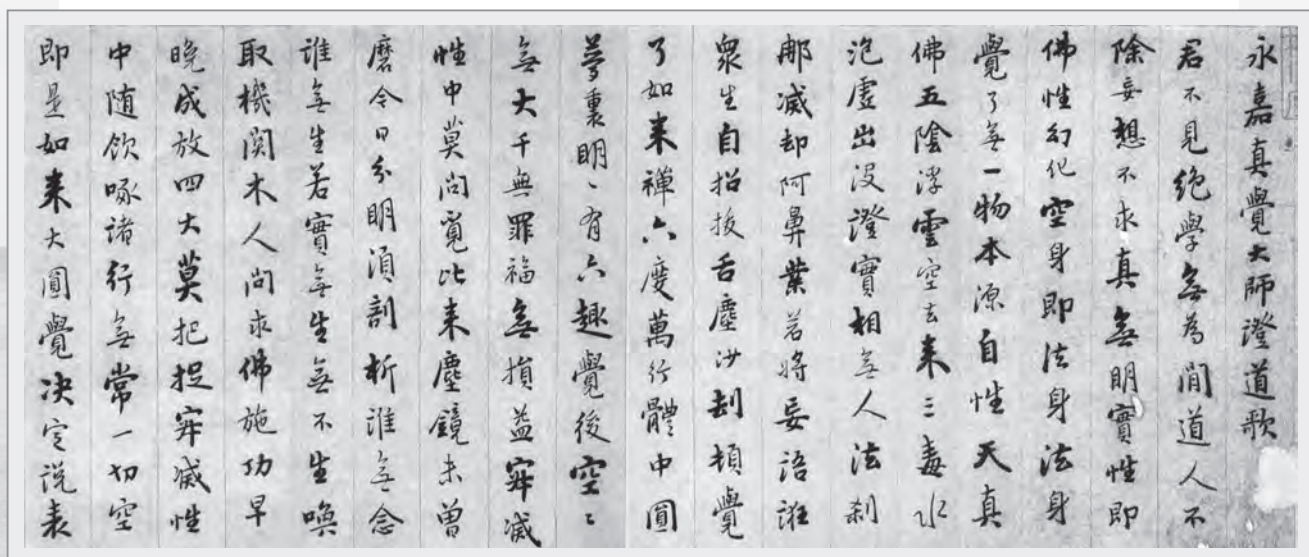 永嘉真覺大師證道歌
君不見絶學無為閒道人不
除妄想不求真無明實性即
佛性幻化空身即法身法身
覺了無一物本源自性天真
佛五陰浮雲空去来三毒水
泡虛出没證實相無人法刹
那滅却阿鼻業若將妄語誑
衆生自招拔舌塵沙刧頓覺
了如来禪六度萬行體中圓
夢裏明〻有六趣覺後空〻
無大千無罪福無損益寂滅
性中莫問覓比来塵鏡未曾
磨今日分明須剖析誰無念
誰無生若實無生無不生喚
取機関木人問求佛施功早
晚成放四大莫把捉寂滅性
中随飲啄諸行無常一切空
即是如来大圓覺决定説表